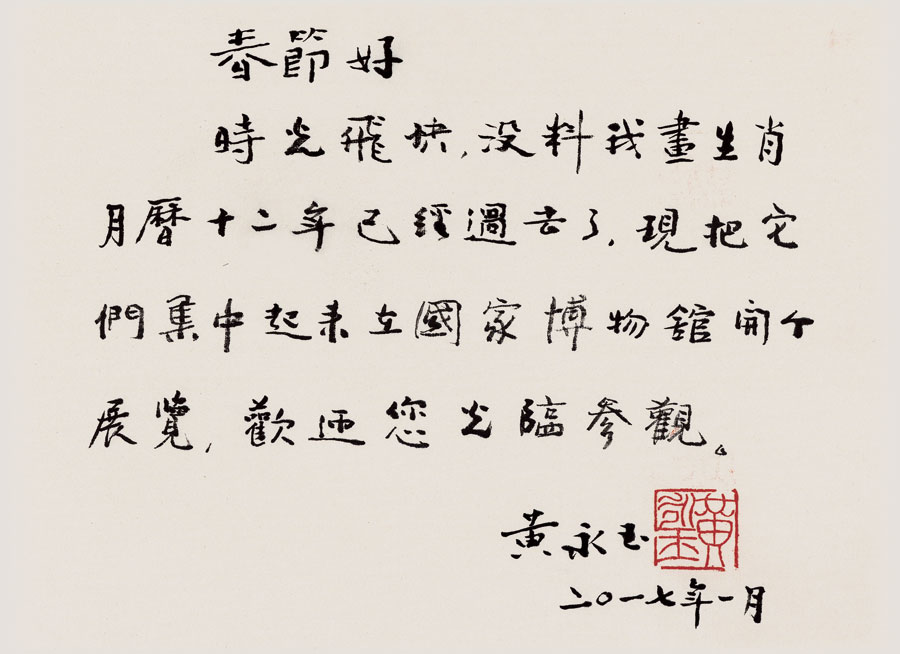 春節好
時光飛快,没料我畫生肖
月曆十二年已經過去了,現把它
們集中起来在國家博物館開个
展覽,歡迎您光臨參觀。
黄永玉
二〇一七年一月